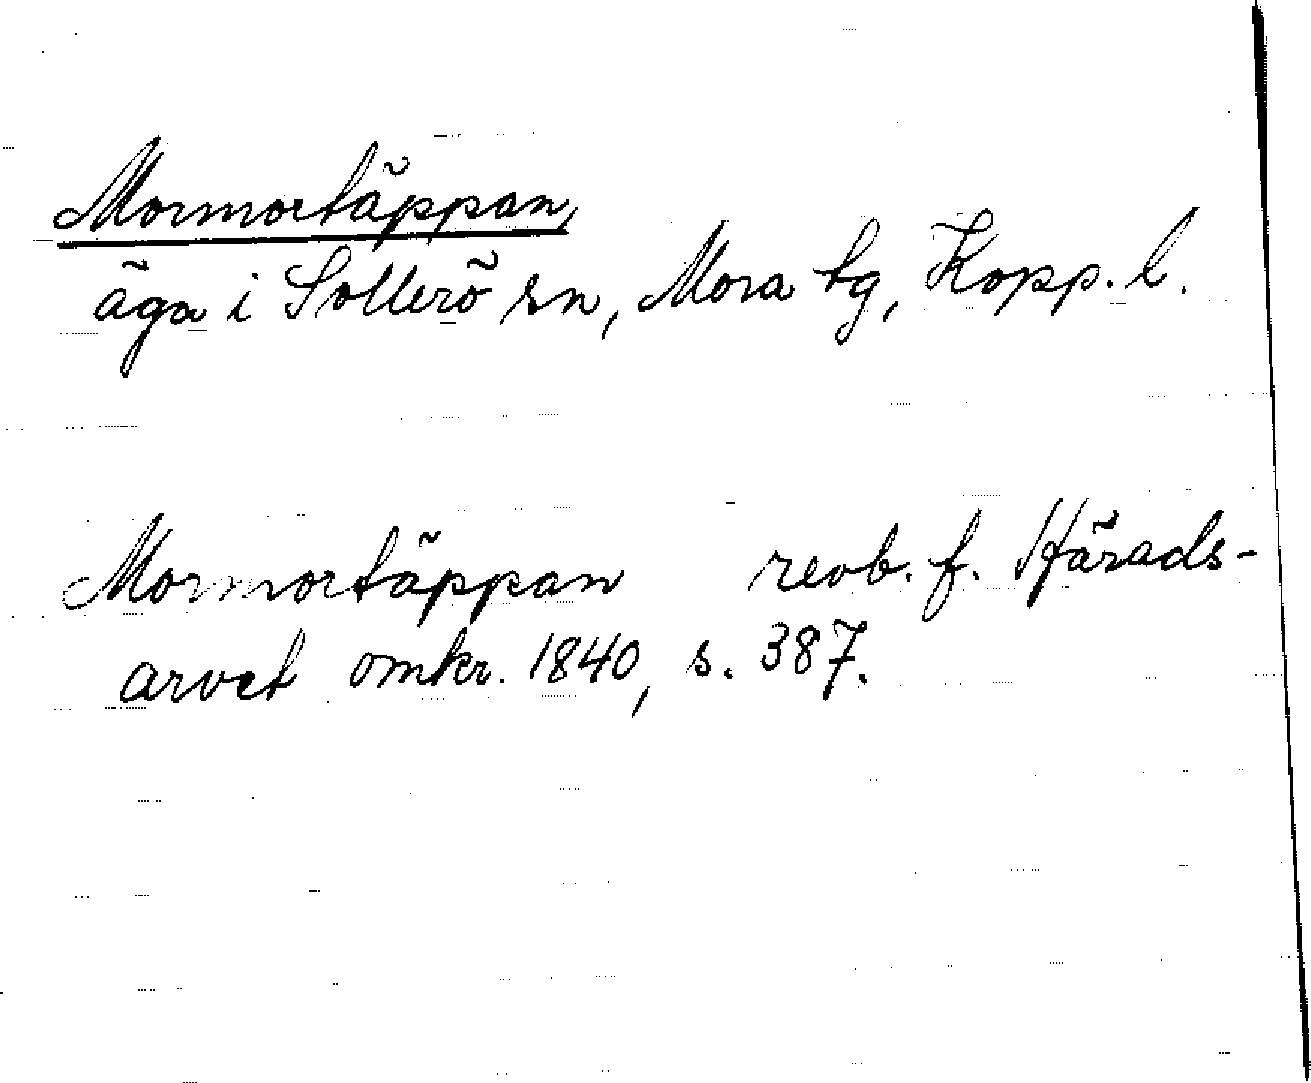 Mormortäppan,
äga i Sollerö sn, Mora tg, Kopp. l.
Mormortäppan revb. f. Härads-
arvet omkr. 1840, s. 387.